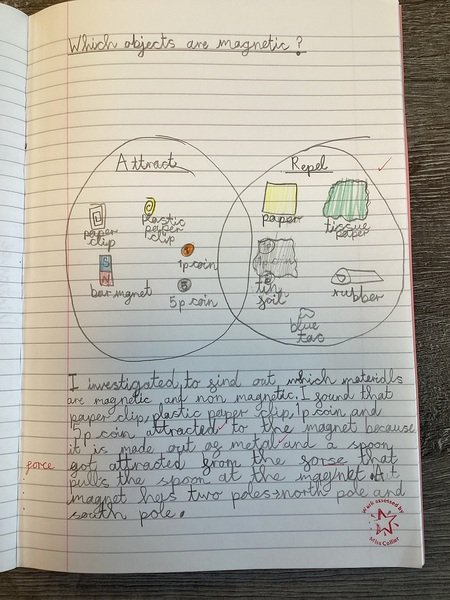 Which objects are magnetic?
Attract
Repel
paper
clip
plastic
paper
clip
paper
tissue
paper
S
N
bar magnet
1p coin
5p coin
tiny
foil
rubber
blue
tac
I investigated to find out which materials
are magnetic and non magnetic. I found that
paper clip, plastic paper clip, 1p coin and
5p coin attracted to the magnet because
it is made out of metal and a spoon
force
got attracted from the forse that
pulls the spoon at the magnet. At
magnet hes two poles→north pole and
south pole.
Work assessed by
Miss Collar